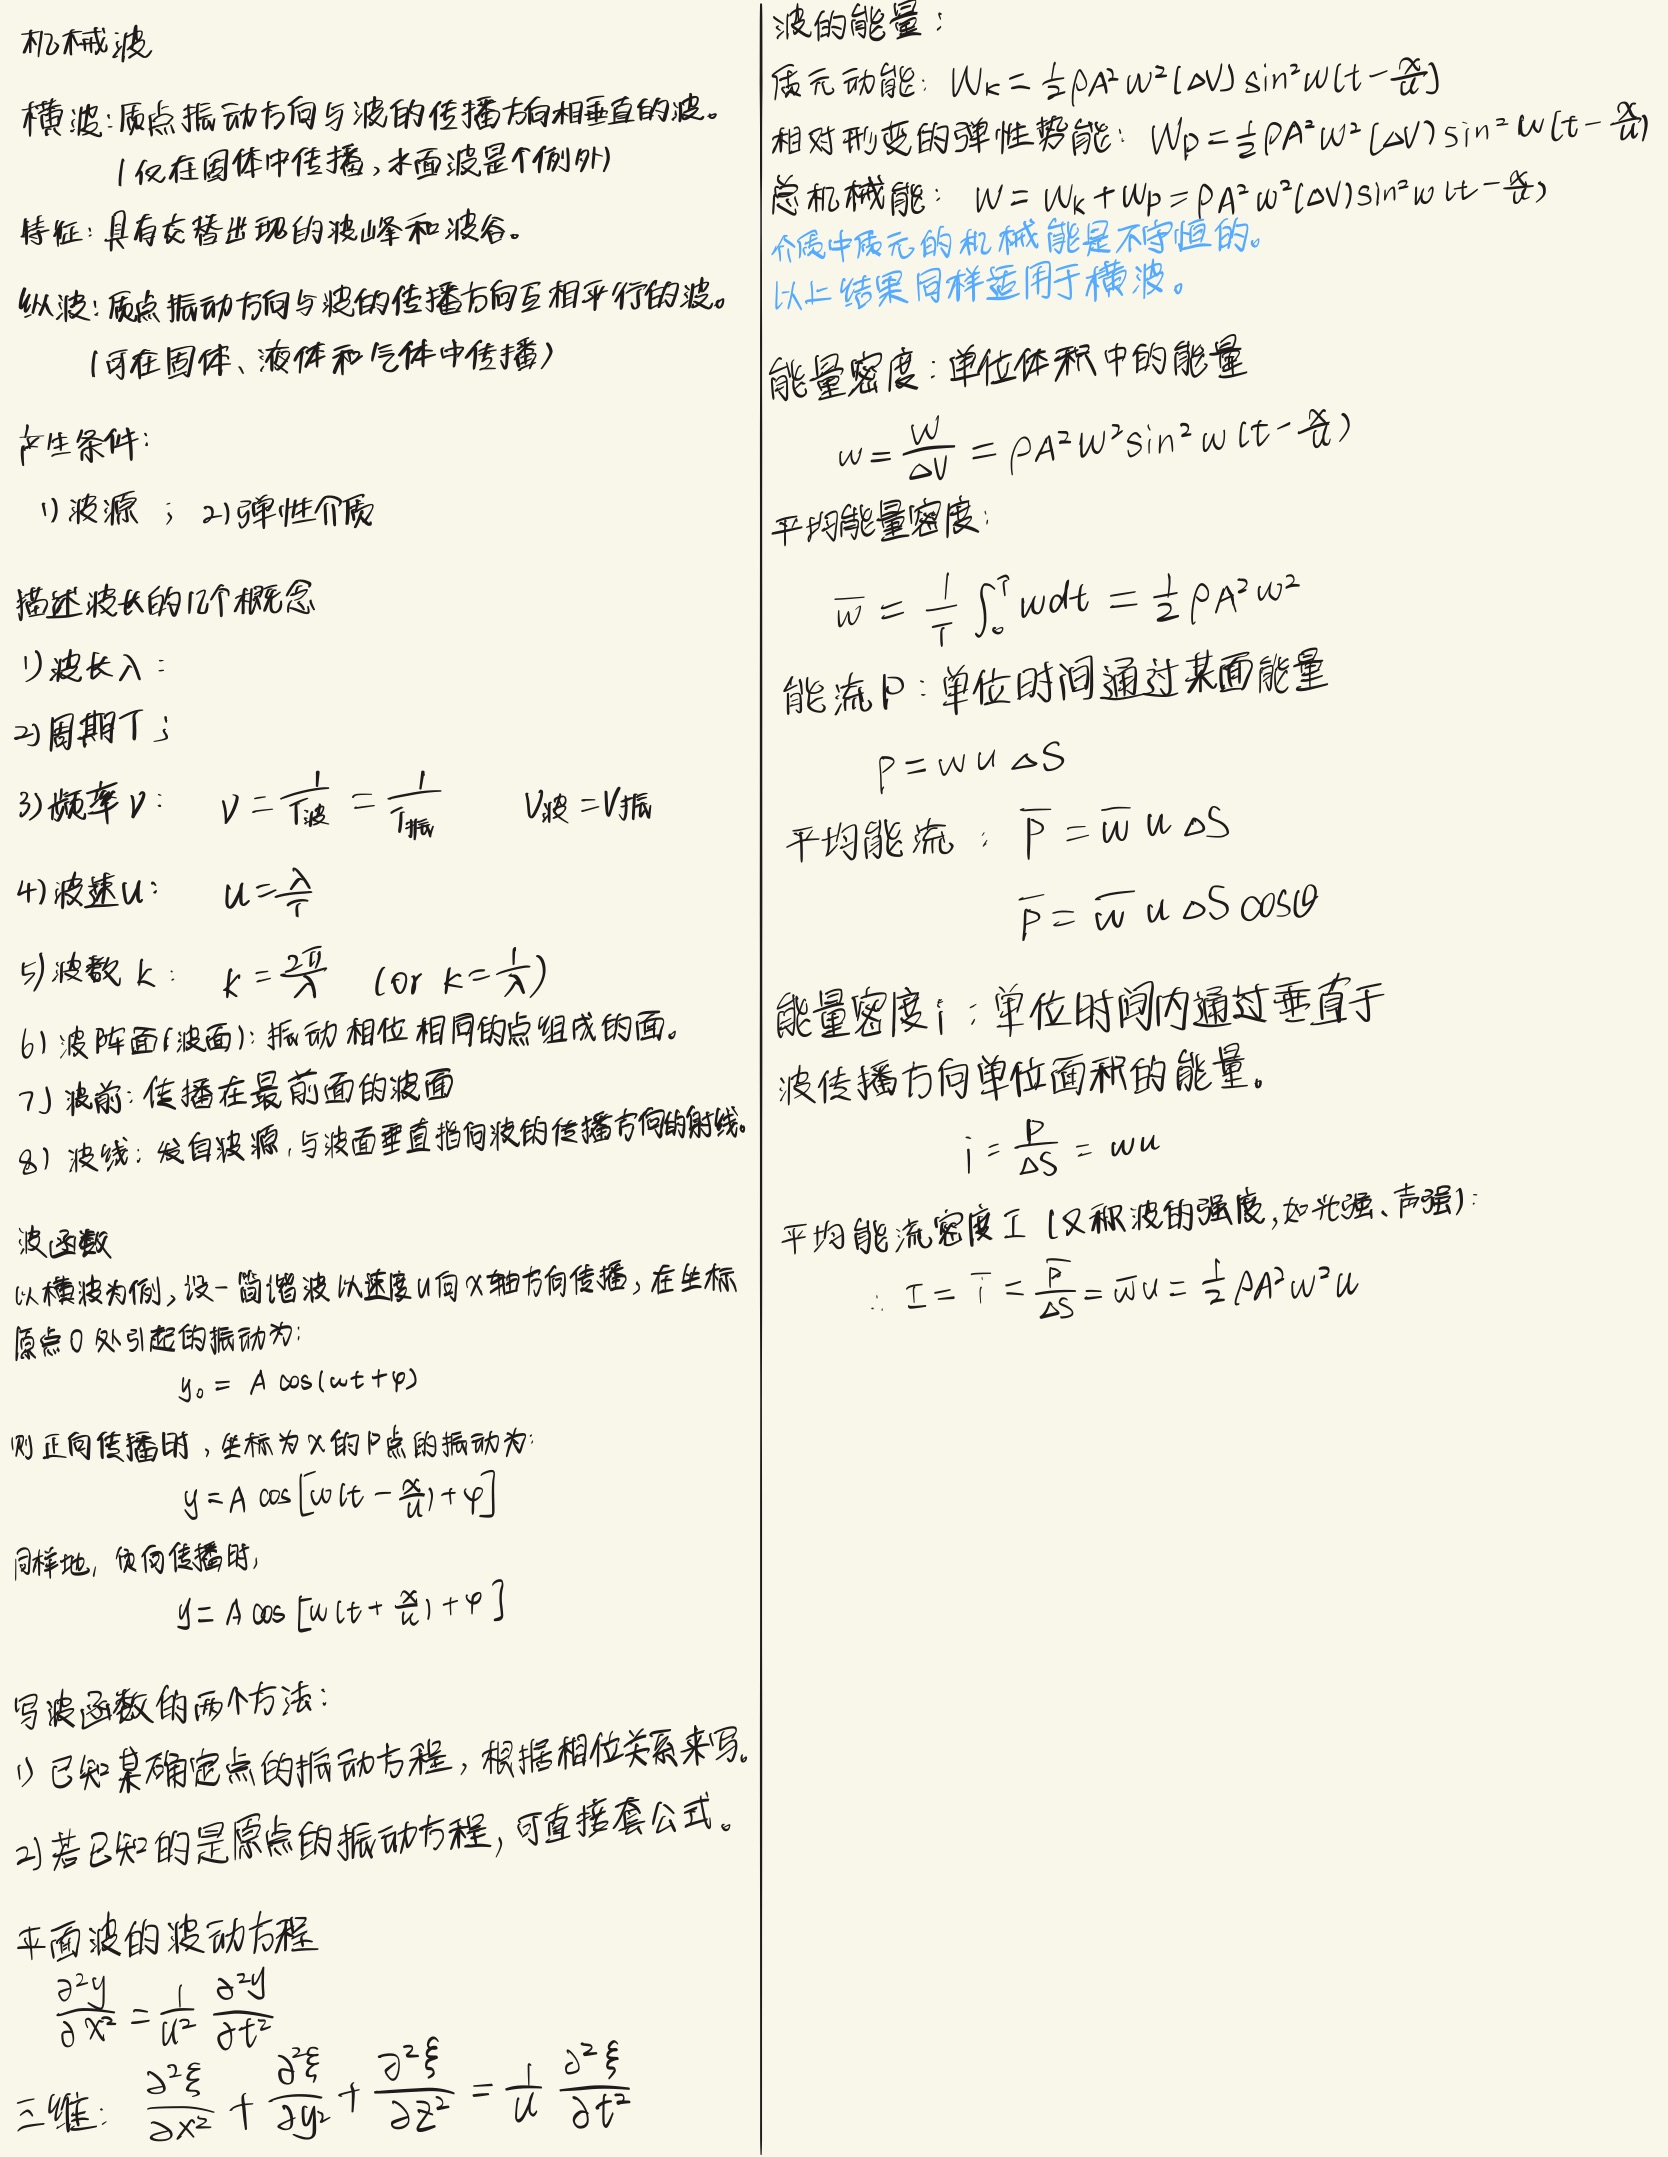 机械波
横波:质点振动方向与波的传播方向相垂直的波。
(仅在固体中传播,水面波是个例外)
特征:具有交替出现的波峰和波谷。
纵波:质点振动方向与波的传播方向互相平行的波。
(可在固体、液体和气体中传播)
产生条件:
1)波源 ; 2)弹性介质
描述波长的几个概念
1)波长λ:
2)周期T;
3)频率ν: ν = 1/T波 = 1/T振 ν波 = ν振
4)波速u: u = λ/T
5)波数 k: k = 2π/λ (or k = 1/λ)
6)波阵面(波面):振动相位相同的点组成的面。
7)波前:传播在最前面的波面
8)波线:发自波源,与波面垂直指向波的传播方向的射线。
波函数
以横波为例,设一简谐波以速度u向x轴方向传播,在坐标
原点O处引起的振动为:
y₀ = A cos(ωt+φ)
则正向传播时,坐标为x的P点的振动为:
y = A cos[ω(t - x/u)+φ]
同样地,负向传播时,
y = A cos[ω(t + x/u)+φ]
写波函数的两个方法:
1)已知某确定点的振动方程,根据相位关系来写。
2)若已知的是原点的振动方程,可直接套公式。
平面波的波动方程
∂²y/∂x² = 1/u² ∂²y/∂t²
三维: ∂²ξ/∂x² + ∂²ξ/∂y² + ∂²ξ/∂z² = 1/u ∂²ξ/∂t²
波的能量:
质元动能: Wk = ½ρA²ω²(ΔV)sin²ω(t - x/u)
相对形变的弹性势能: Wp = ½ρA²ω²(ΔV)sin²ω(t - x/u)
总机械能: W = Wk + Wp = ρA²ω²(ΔV)sin²ω(t - x/u)
介质中质元的机械能是不守恒的。
以上结果同样适用于横波。
能量密度:单位体积中的能量
w = W/ΔV = ρA²ω²sin²ω(t - x/u)
平均能量密度:
w̄ = 1/T ∫₀ᵀ wdt = ½ρA²ω²
能流P:单位时间通过某面能量
P = wuΔS
平均能流: P̄ = w̄uΔS
P̄ = w̄uΔScosθ
能量密度i:单位时间内通过垂直于
波传播方向单位面积的能量。
i = P/ΔS = wu
平均能流密度I(又积波的强度,如光强、声强):
∴ I = ī = P̄/ΔS = w̄u = ½ρA²ω²u